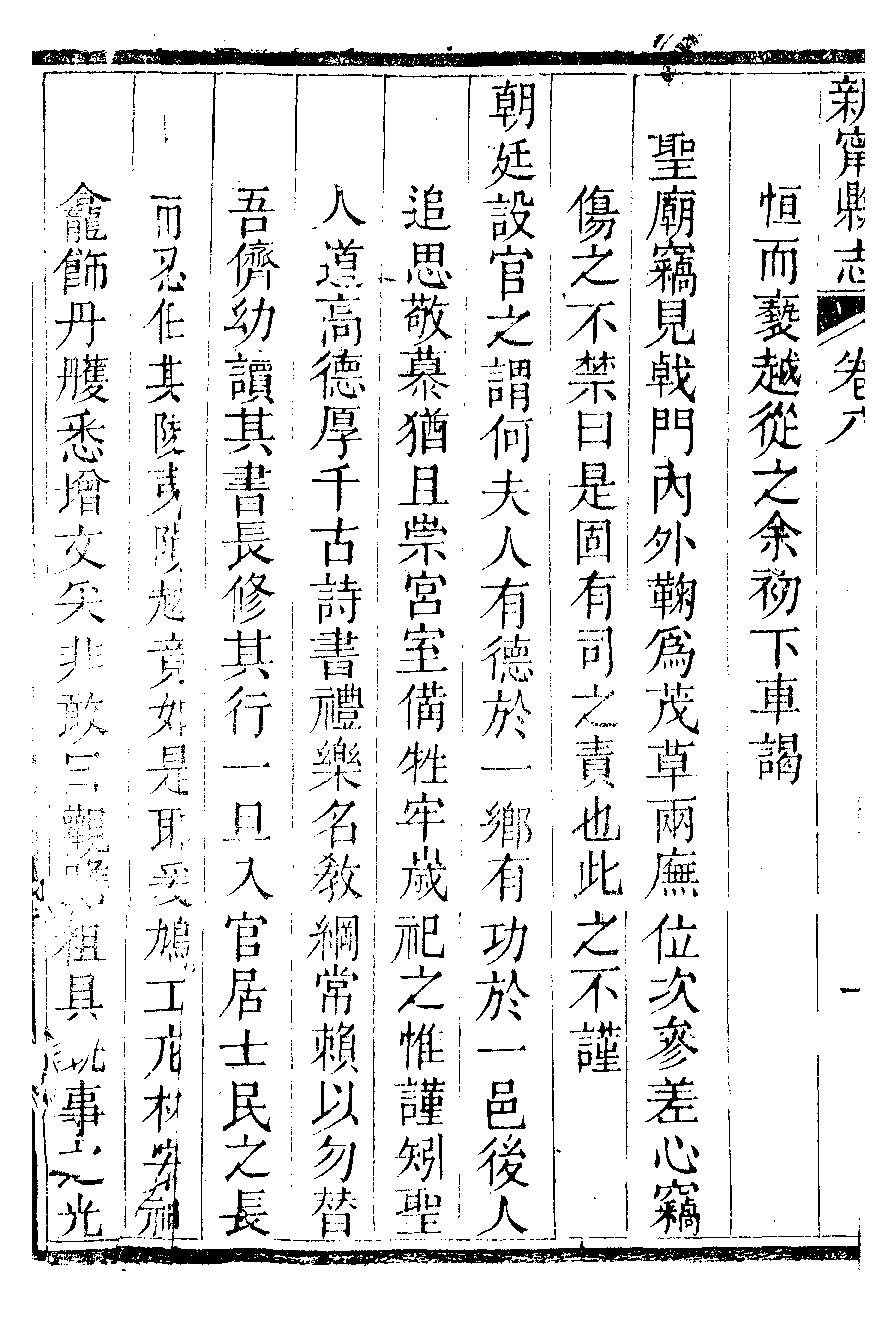 新甯縣志 卷八
恒而褻越從之余初下車謁
聖廟竊見戟門內外鞠為茂草兩廡位次參差心竊
傷之不禁曰是固有司之責也此之不謹
朝廷設官之謂何夫人有德於一鄉有功於一邑後人
追思敬慕猶且崇宮室備牲牢歲祀之惟謹矧聖
人道高德厚千古詩書禮樂名教綱常賴以勿替
吾儕幼讀其書長修其行一旦入官居士民之長
而忍任其陵夷隕越竟如是耶爰鳩工庀材安神
龕飾丹雘悉增文矣非敢曰觀粗具 事之光